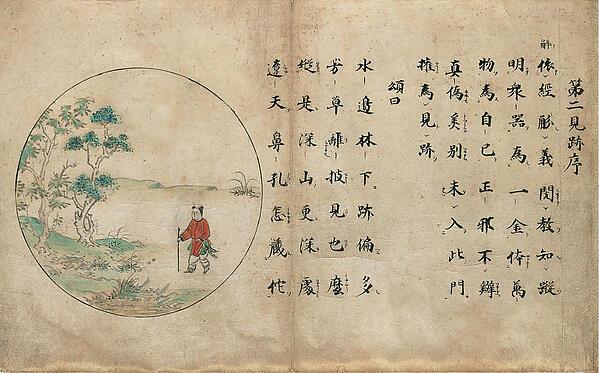 第二見跡序
解
依經義閱教知蹤
明衆器為一金体萬
物為自己正邪不辨
真偽奚別未入此門
權為見跡
頌曰
水邊林下跡偏多
芳草離披見也麼
縱是深山更深處
遼天鼻孔怎藏佗